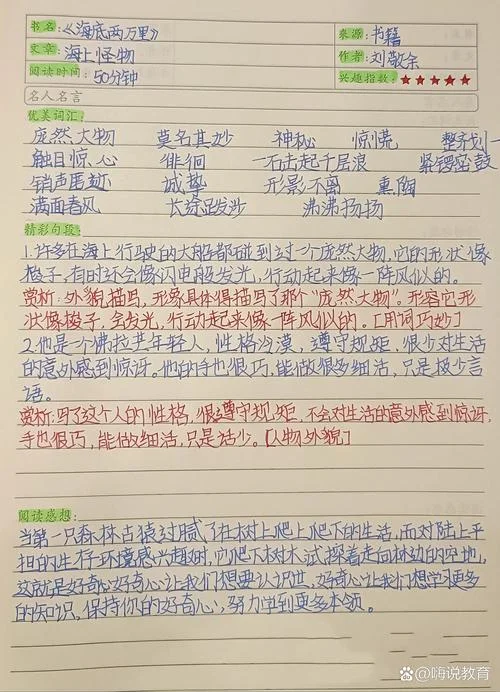 书名:《海底两万里》 来源:书籍
文章:海上怪物 作者:刘敬余
阅读时间:50分钟 兴趣指数:★★★★★
名人名言
优美词汇:
庞然大物 莫名其妙 神秘 惊慌 整齐划一
触目惊心 徘徊 一石击起千层浪 紧锣密鼓
销声匿迹 诚挚 形影不离 熏陶
满面春风 长途跋涉 沸沸扬扬
精彩句段:
1.许多在海上行驶的大船都碰到过一个庞然大物,它的形状像
梭子,有时还会像闪电般发光,行动起来像一阵风似的。
赏析:外貌描写,形象具体得描写了那个“庞然大物”。形容它形
状像梭子,会发光,行动起来像一阵风似的。[用词巧妙]
2.他是一个佛拉芒年轻人,性格冷漠,遵守规矩,很少对生活
的意外感到惊讶。他的手也很巧,能做很多细活,只是极少言
语。
赏析:写了这个人的性格,很遵守规矩,不会对生活的意外感到惊讶,
手也很巧,能做细活,只是话少。[人物外貌]
阅读感想:
当第一只森林古猿过腻了在树上爬上爬下的生活,而对陆上平
担的生存环境感兴趣时,它爬下树木试探着走向林边的空地,
这就是好奇心,好奇心让我们想要认识世,好奇心让我们想学习更多
的知识,保持你的好奇心,努力学到更多本领。
@嗨说教育